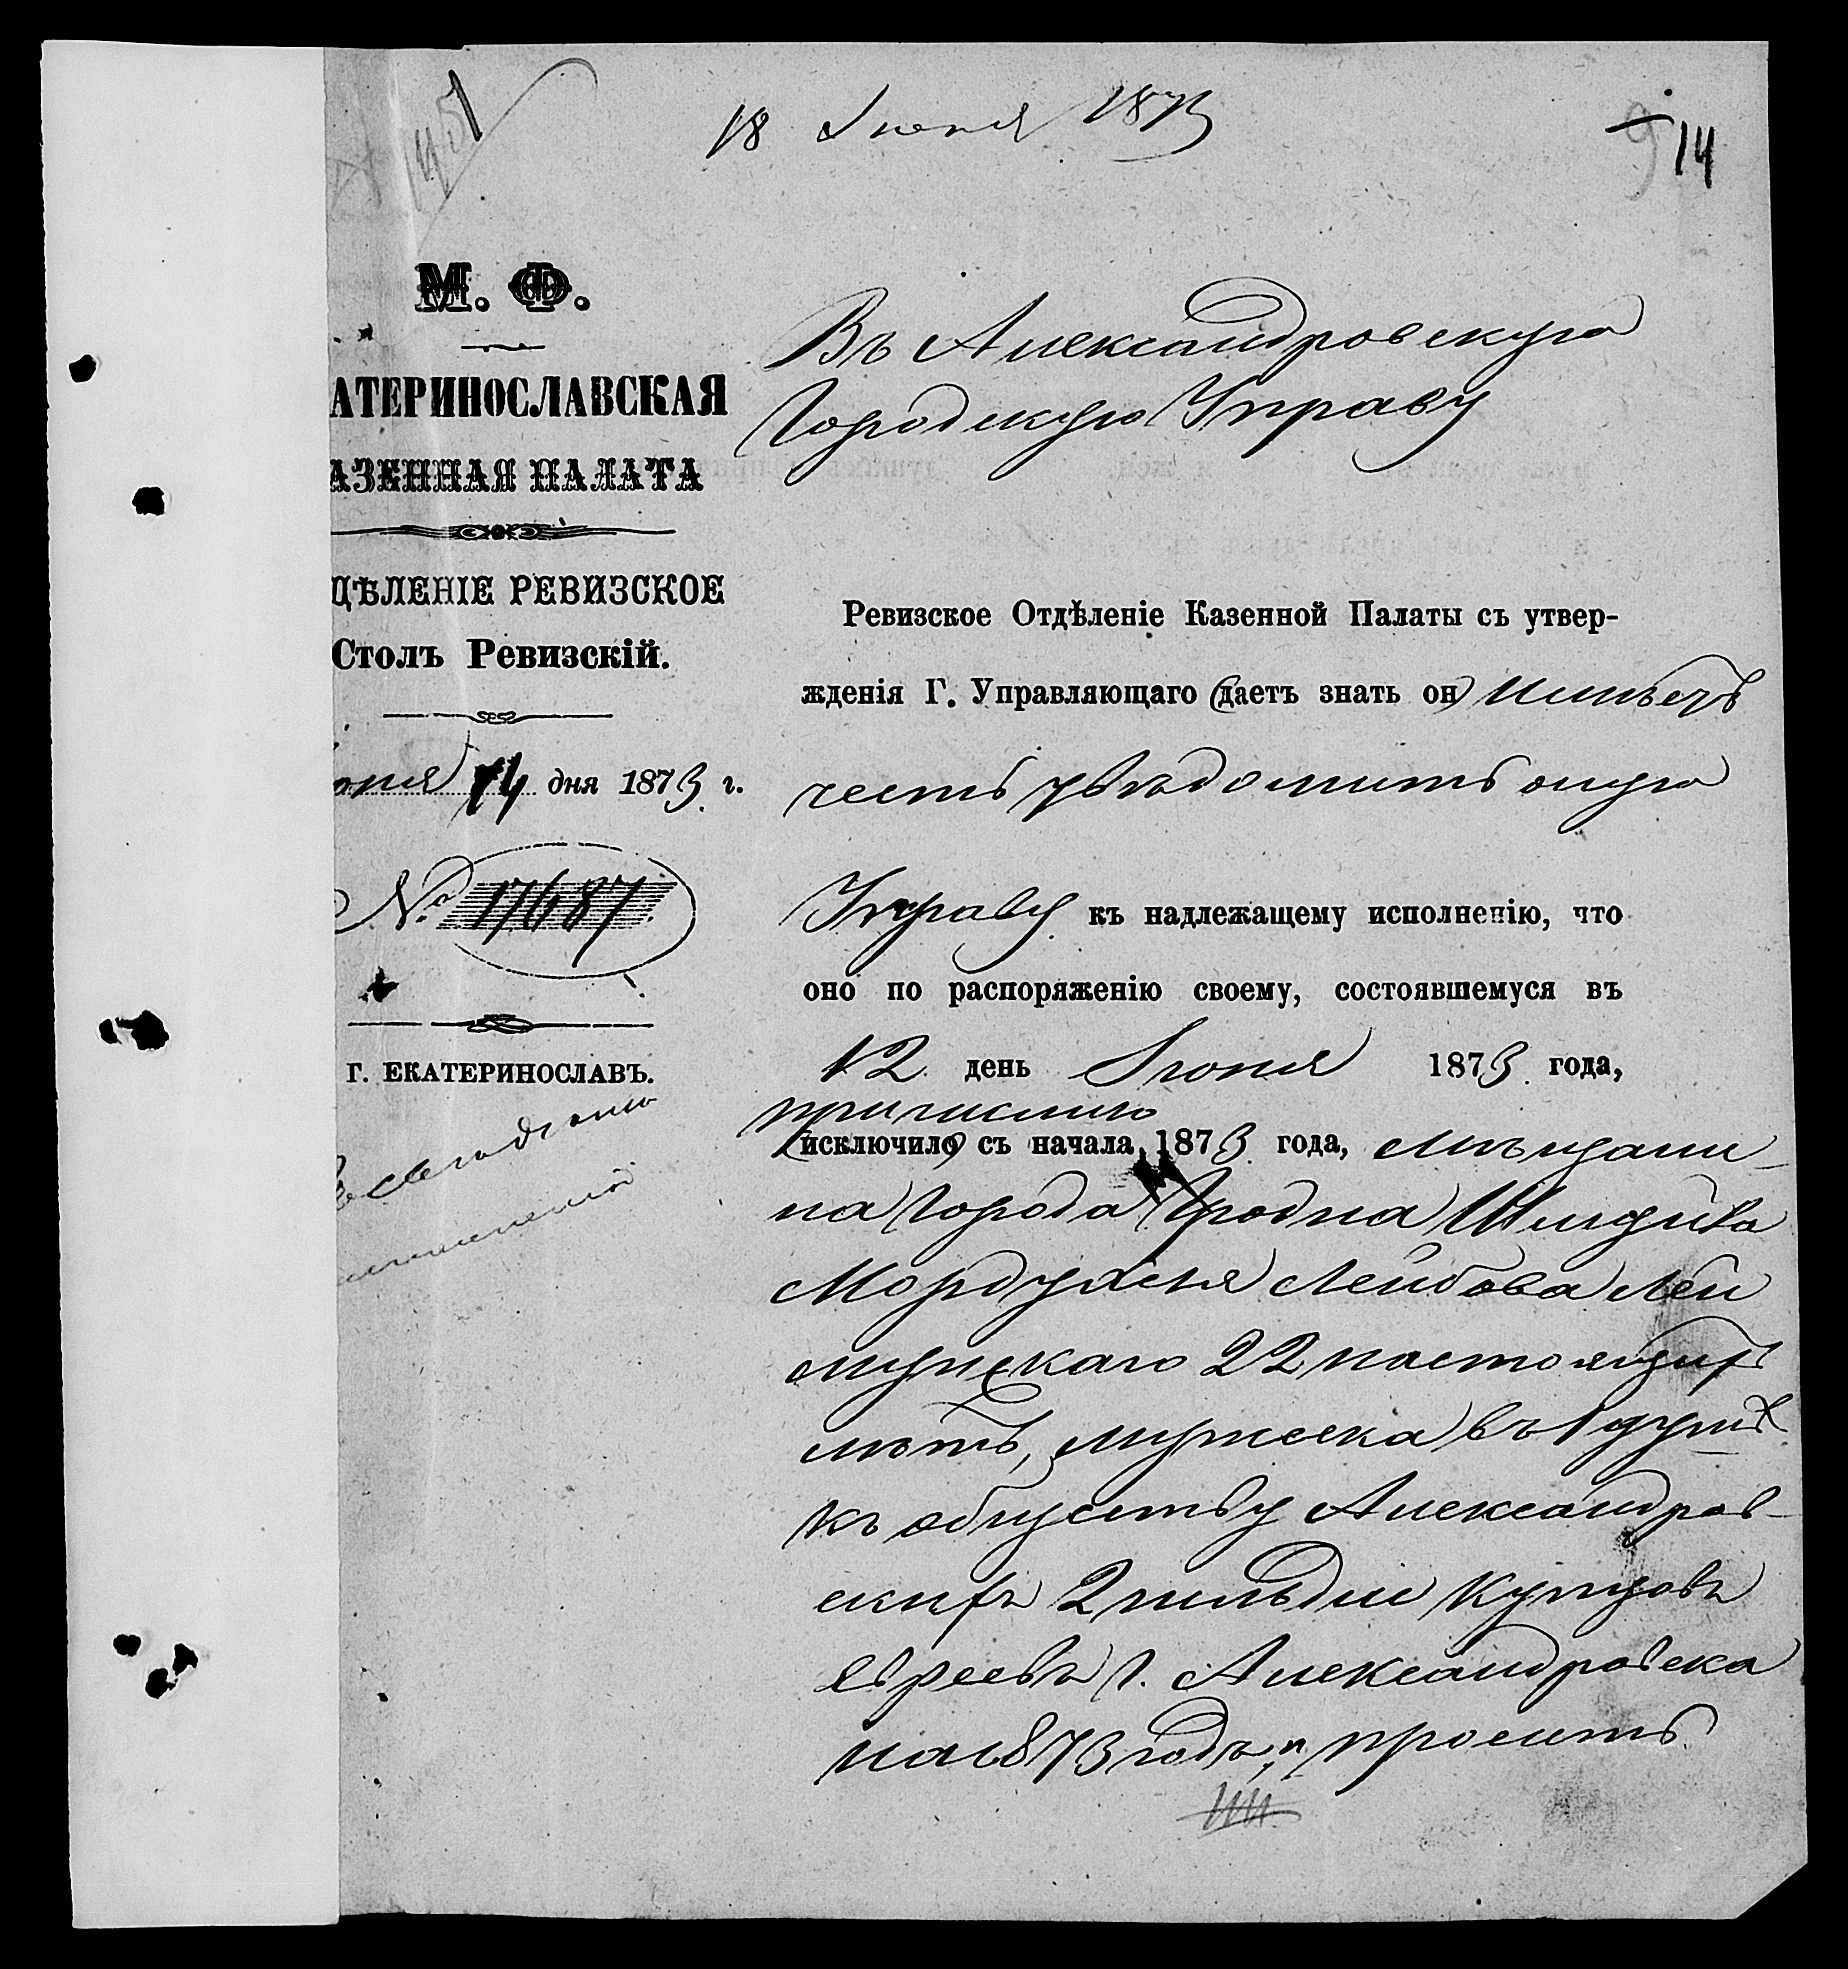 1451
18 Июня 1873
9 14
М. Ф.
АТЕРИНОСЛАВСКАЯ
АЗЕННАЯ ПАЛАТА
ДѢЛЕНІЕ РЕВИЗСКОЕ
Столъ Ревизскій.
юня 14 дня 1873 г.
№ 17687
Г. ЕКАТЕРИНОСЛАВЪ.
Въ Александровскую
Городскую Управу
Ревизское Отдѣленіе Казенной Палаты съ утвер-
жденія Г. Управляющаго (даетъ знать он) имѣетъ
честь увѣдомить оную
Управу къ надлежащему исполненію, что
оно по распоряженію своему, состоявшемуся въ
12 день Іюня 1873 года,
причислило
(исключило) съ начала 1873 года, мѣщани-
на города Гродна
Мордухая Лейбова Лей
22 настоящихъ
лѣтъ, мужеска въ 1 душѣ
къ обществу Александров-
скихъ 2 гильдіи купцовъ
евреевъ г. Александровска
на 1873 годъ, и проситъ